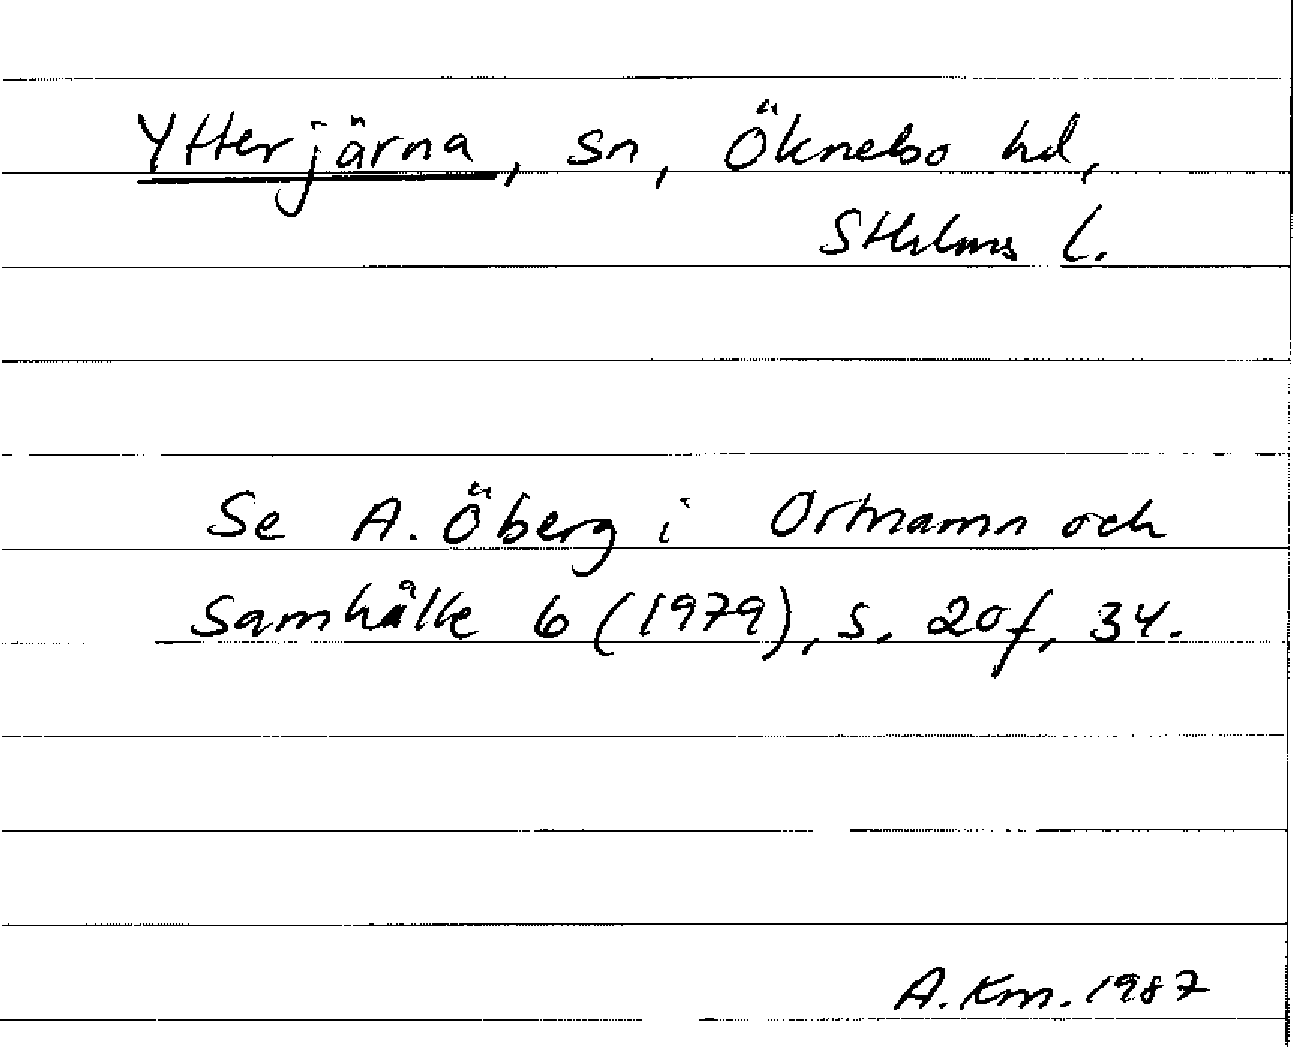 Ytterjärna, sn, Öknebo hd,
Sthlms l.
Se A. Öberg i Ortnamn och
Samhälle 6 (1979), s. 20f, 34.
A. Km. 1987